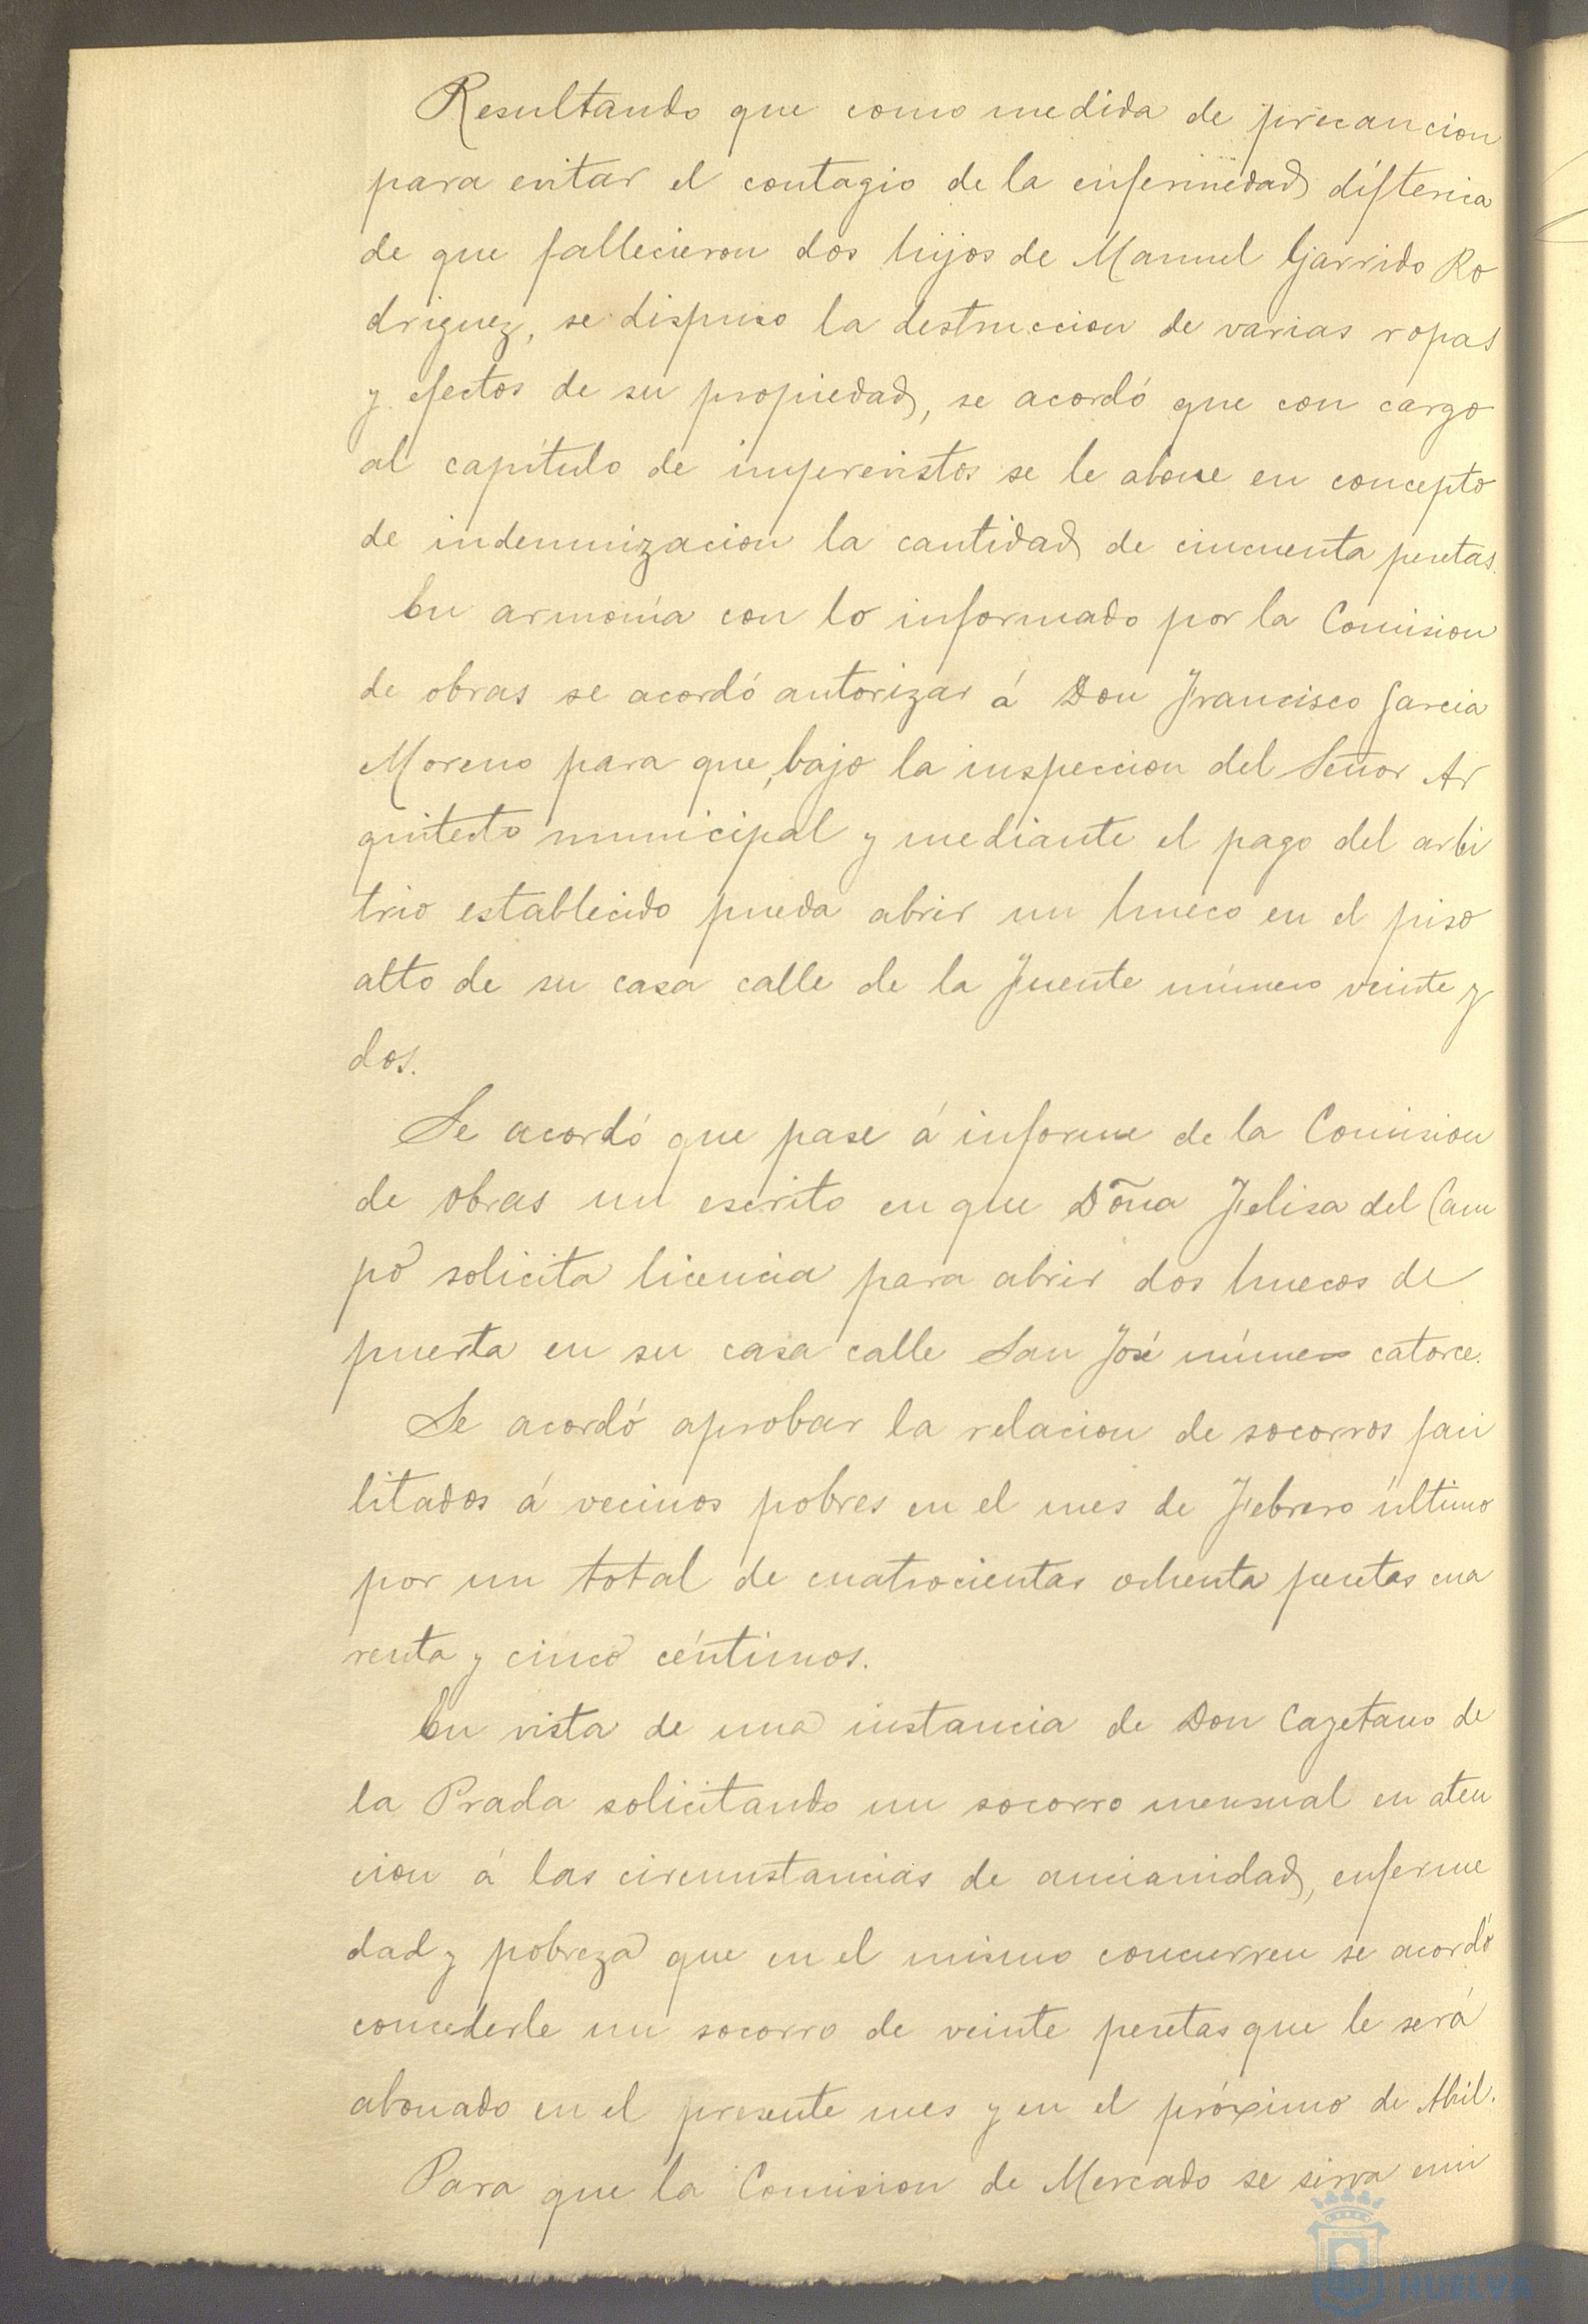 Resultando que como medida de precaucion
para evitar el contagio de la enfermedad difterica
de que fallecieron dos hijos de Manuel Garrido Ro
driguez, se dispuso la destruccion de varias ropas
y efectos de su propiedad, se acordó que con cargo
al capítulo de imprevistos se le abone en concepto
de indemnizacion la cantidad de cincuenta pesetas.
En armonía con lo informado por la Comision
de obras se acordó autorizar á Don Francisco Garcia
Moreno para que, bajo la inspeccion del Señor Ar
quitecto municipal y mediante el pago del arbi
trio establecido pueda abrir un hueco en el piso
alto de su casa calle de la Fuente número veinte y
dos.
Se acordó que pase á informe de la Comision
de obras un escrito en que Doña Felisa del Cam
po solicita licencia para abrir dos huecos de
puerta en su casa calle San José número catorce.
Se acordó aprobar la relacion de socorros faci
litados á vecinos pobres en el mes de Febrero último
por un total de cuatrocientas ochenta pesetas cua
renta y cinco céntimos.
En vista de una instancia de Don Cayetano de
la Prada solicitando un socorro mensual en aten
cion á las circunstancias de ancianidad, enferme
dad y pobreza que en el mismo concurren se acordó
concederle un socorro de veinte pesetas que le será
abonado en el presente mes y en el próximo de Abril.
Para que la Comision de Mercado se sirva emi
HUELVA